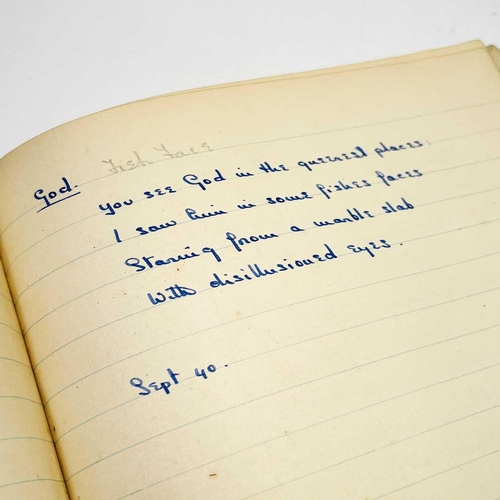 Fish Face
God.
You see God in the queerest places.
I saw him in some fishes faces
Staring from a marble slab
With disillusioned eyes.
Sept 40.